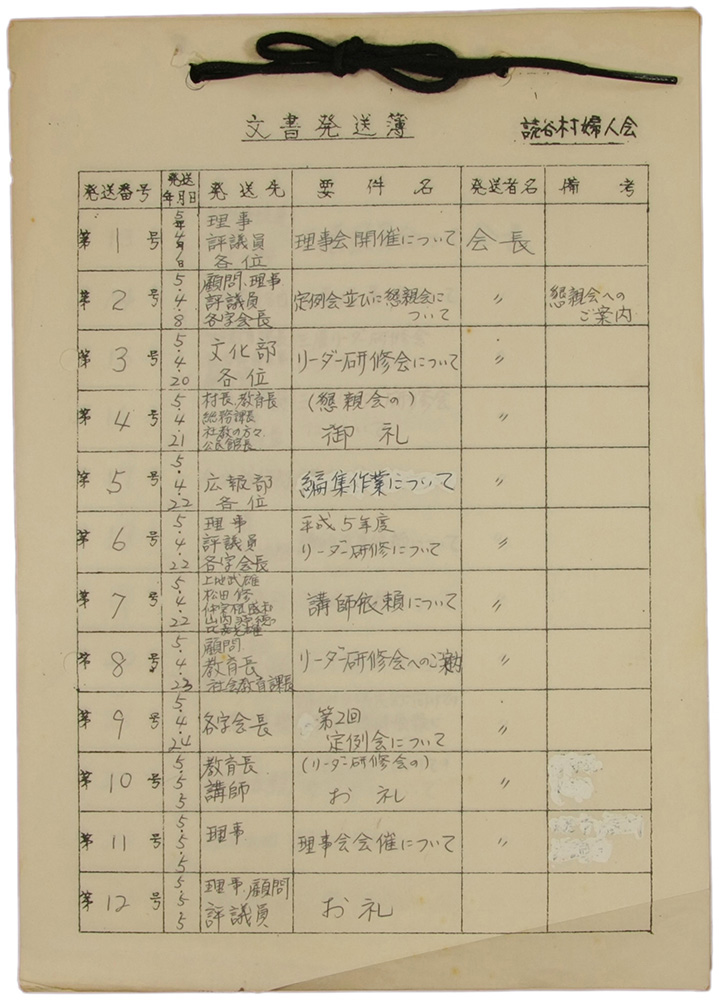 文書発送簿
読谷村婦人会
発送番号 発送年月日 発送先 要件名 発送者名 備考
第1号 5年4月1日 理事 評議員 各位 理事会開催について 会長
第2号 5.4.8 顧問、理事 評議員 各字会長 定例会並びに懇親会について 〃 懇親会へのご案内
第3号 5.4.20 文化部 各位 リーダー研修会について 〃
第4号 5.4.21 村長、教育長 総務課長 社教の方々 公民館長 (懇親会の) 御礼 〃
第5号 5.4.22 広報部 各位 編集作業について 〃
第6号 5.4.22 理事 評議員 各字会長 平成5年度 リーダー研修について 〃
第7号 5.4.22 上地武雄 松田修 講師依頼について 〃
第8号 5.4.23 顧問 教育長 社会教育課長 リーダー研修会へのご案内 〃
第9号 5.4.24 各字会長 第2回 定例会について 〃
第10号 5.5.5 教育長 講師 (リーダー研修会の) お礼 〃
第11号 5.5.5 理事 理事会会催について 〃
第12号 5.5.5 理事、顧問 評議員 お礼